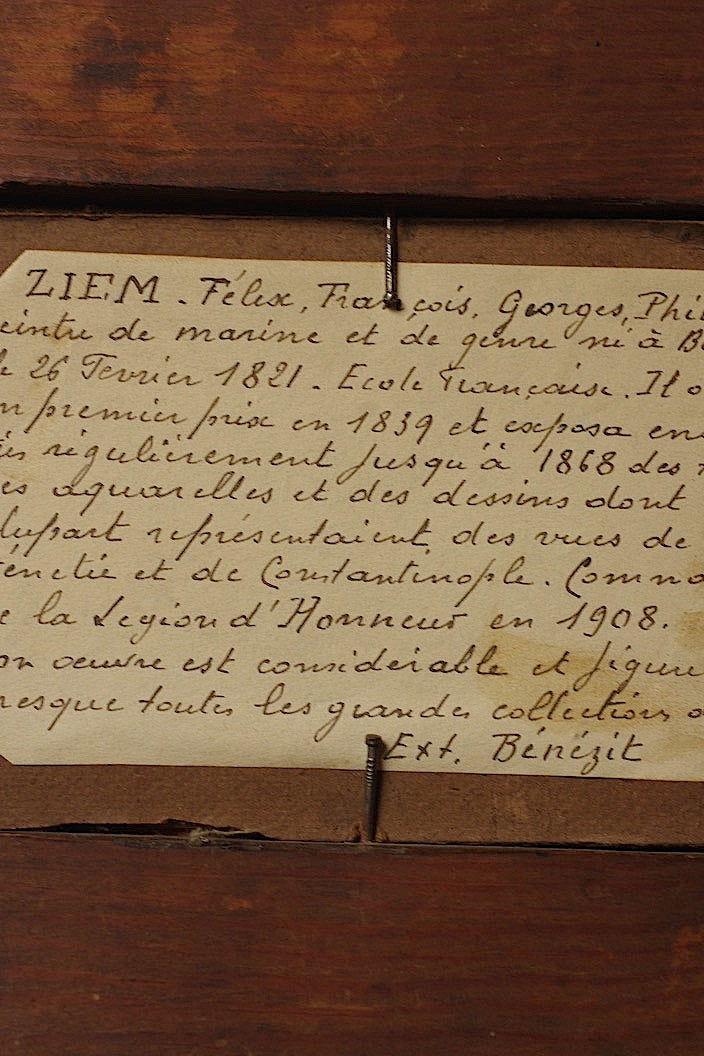 ZIEM. Félix, François, Georges, Phil
eintre de marine et de genre né à B
le 26 Fevrier 1821. Ecole Française. Il o
n premier prix en 1839 et exposa en
régulièrement jusqu'à 1868 des
es aquarelles et des dessins dont
lupart représentaient des vues de
énétie et de Constantinople. Comma
e la Legion d'Honneur en 1908.
on oeuvre est considérable et figure
resque toutes les grandes collections
Ext. Bénézit